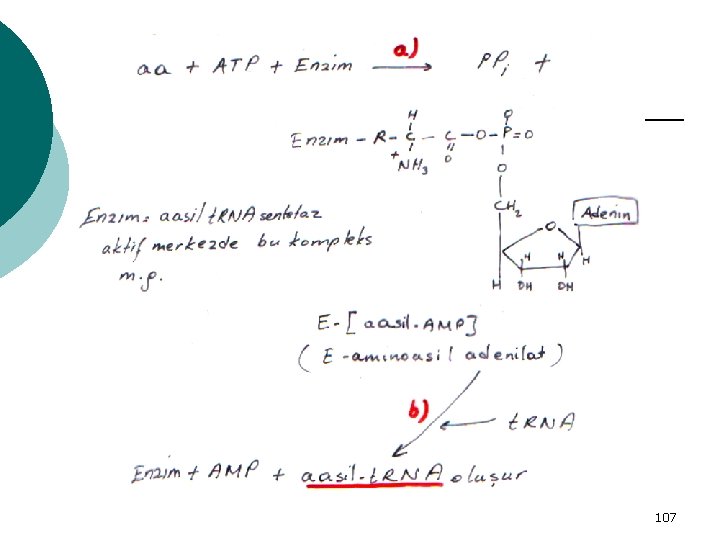 aa + ATP + Enzim a) → PPi +
H O
Enzim - R - C - C - O - P = O
+NH3 O O
CH2
O Adenin
Enzim: aasil tRNA sentetaz
aktif merkezde bu kompleks
H H H
m.g.
H OH OH
E-[aasil-AMP]
(E-aminoasil adenilat)
b) ← tRNA
Enzim + AMP + aasil-tRNA oluşur
107